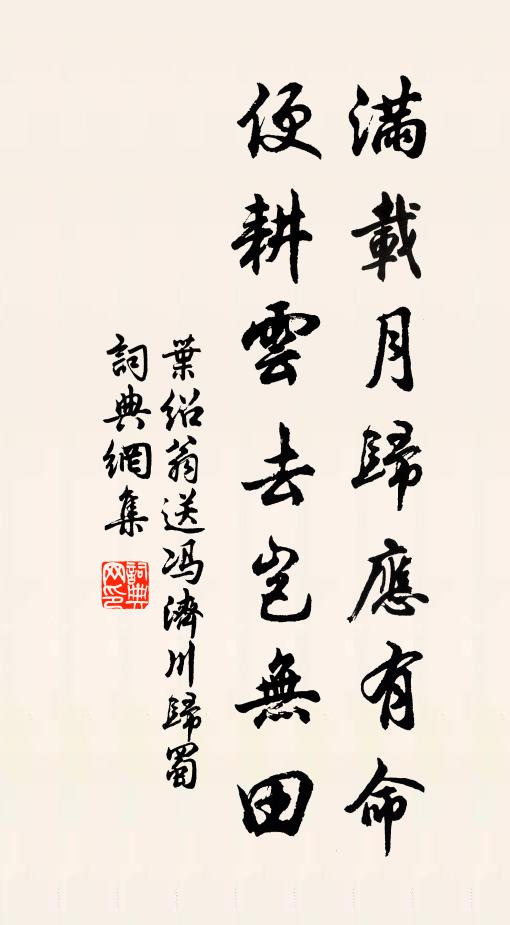 滿載月歸應有命
便耕雲去豈無田
葉紹翁送馮濟川歸蜀
詞典網集
詞典
网印